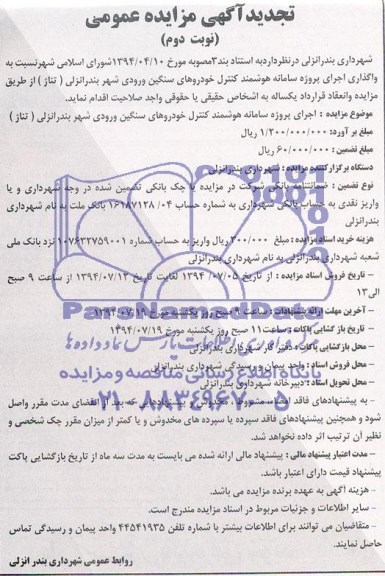 تجدیدآگهی مزایده عمومی
(نوبت دوم)
شهرداری بندرانزلی درنظرداردبه استناد بند۳مصوبه مورخ ۱۳۹۴/۰۴/۱۰شورای اسلامی شهرنسبت به
واگذاری اجرای پروژه سامانه هوشمند کنترل خودروهای سنگین ورودی شهر بندرانزلی ( تناژ ) از طریق
مزایده وانعقاد قرارداد یکساله به اشخاص حقیقی یا حقوقی واجد صلاحیت اقدام نماید.
موضوع مزایده : اجرای پروژه سامانه هوشمند کنترل خودروهای سنگین ورودی شهر بندرانزلی ( تناژ )
مبلغ بر آورد: ۱/۲۰۰/۰۰۰/۰۰۰ ریال
مبلغ تضمین : ۶۰/۰۰۰/۰۰۰ ریال
دستگاه برگزارکننده مزایده : شهرداری بندرانزلی
نوع تضمین : ضمانتنامه بانکی شرکت در مزایده یا چک بانکی تضمین شده در وجه شهرداری و یا
واریز نقدی به حساب بانکی شهرداری به شماره حساب ۱۶۱۸۷۱۲۸/۰۴ بانک ملت به نام شهرداری
بندرانزلی
هزینه خرید اسناد مزایده : مبلغ ۳۰۰/۰۰۰ ریال واریز به حساب شماره ۱۰۷۶۳۲۷۵۹۰۰۱ نزد بانک ملی
شعبه شهرداری بندرانزلی به نام شهرداری بندرانزلی
– تاریخ فروش اسناد مزایده : از تاریخ ۱۳۹۴/۰۷/۰۵ لغایت تاریخ ۱۳۹۴/۰۷/۱۳ از ساعت ۹ صبح
الی۱۳
– آخرین مهلت ارائه پیشنهادات : ساعت ۹ صبح روز یکشنبه مورخ ۱۳۹۴/۰۷/۱۹
– تاریخ بازگشایی پاکات : ساعت ۱۱ صبح روز یکشنبه مورخ ۱۳۹۴/۰۷/۱۹
– محل بازگشایی پاکت : دفتر کار شهرداری بندرانزلی
– محل فروش اسناد : واحد پیمان و رسیدگی شهرداری بندرانزلی
– محل تحویل اسناد : دبیرخانه شهرداری بندرانزلی
– به پیشنهادهای فاقد امضاء، مشروط، مخدوش و پیشنهادهایی که بعد از انقضای مدت مقرر واصل
شود و همچنین پیشنهادهای فاقد سپرده یا سپرده های مخدوش و یا کمتر از میزان مقرر چک شخصی و
نظیر آن ترتیب اثر داده نخواهد شد.
– مدت اعتبار پیشنهاد مالی : پیشنهاد مالی ارائه شده می بایست به مدت سه ماه از تاریخ بازگشایی پاکت
پیشنهاد قیمت دارای اعتبار باشد.
– هزینه آگهی به عهده برنده مزایده می باشد.
– سایر اطلاعات و جزئیات مربوط در اسناد مزایده مندرج است.
– متقاضیان می توانند برای اطلاعات بیشتر با شماره تلفن ۴۴۵۴۱۹۳۵ واحد پیمان و رسیدگی تماس
حاصل نمایند.
روابط عمومی شهرداری بندر انزلی
ParsNamadData
پایگاه اطلاع رسانی مناقصه و مزایده
۰۲۱-۸۸۳۴۹۶۷۰-۵